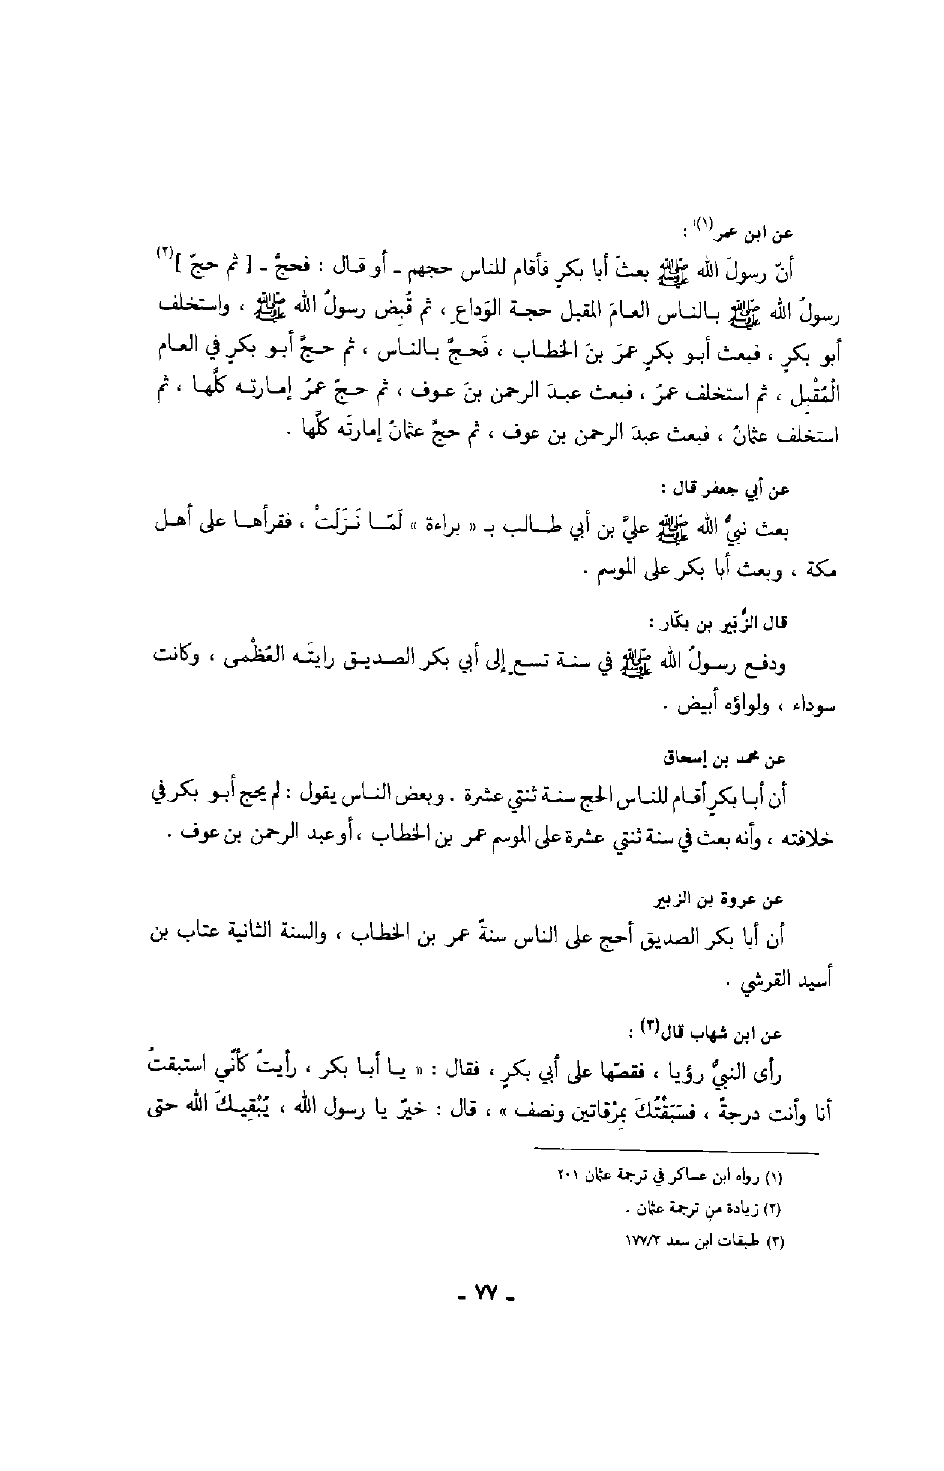 عن ابن عمر(١) :
أنّ رسولَ الله ﷺ بعثَ أبا بكرٍ فأقام للناس حجهم ـ أو قال : فحجَّ ـ [ ثم حجّ ](٢)
رسولُ الله ﷺ بالناس العامَ المقبل حجة الوَداعِ ، ثم قُبِض رسولُ الله ﷺ ، واستخلف
أبو بكرٍ ، فبعث أبو بكرٍ عمرَ بنَ الخطاب ، فَحجَّ بالناس ، ثم حجَّ أبو بكرٍ في العام
الْمُقْبِل ، ثم استخلف عمرُ ، فبعث عبدَ الرحمن بنَ عوف ، ثم حجّ عمرُ إمارته كلَّها ، ثم
استخلف عثمانُ ، فبعث عبدَ الرحمن بن عوف ، ثم حجَّ عثمانُ إمارتَه كلَّها .
عن أبي جعفر قال :
بعث نبيُّ الله ﷺ عليَّ بن أبي طالب بـ « براءة » لَمّا نَزَلَتْ ، فقرأها على أهل
مكة ، وبعث أبا بكر على الموسم .
قال الزُّبير بن بكّار :
ودفع رسولُ الله ﷺ في سنة تسعٍ إلى أبي بكر الصديق رايتَه العُظْمى ، وكانت
سوداء ، ولواؤه أبيض .
عن محمد بن إسحاق
أن أبا بكرٍ أقام للناس الحج سنة ثنتي عشرة . وبعض الناس يقول : لم يحج أبو بكر في
خلافته ، وأنه بعث في سنة ثنتي عشرة على الموسم عمر بن الخطاب ، أو عبد الرحمن بن عوف .
عن عروة بن الزبير
أن أبا بكر الصديق أحج على الناس سنةً عمر بن الخطاب ، والسنة الثانية عتاب بن
أسيد القرشي .
عن ابن شهاب قال(٣) :
رأى النبيُّ رؤيا ، فقصّها على أبي بكرٍ ، فقال : « يا أبا بكر ، رأيتُ كأنّي استبقتُ
أنا وأنت درجةً ، فسَبَقْتُكَ بمرْقاتين ونصف » ، قال : خيرٌ يا رسول الله ، يُبْقيكَ الله حتى
(١) رواه ابن عساكر في ترجمة عثمان ٢٠١
(٢) زيادة من ترجمة عثمان .
(٣) طبقات ابن سعد ١٧٧/٣
ـ ٧٧ ـ